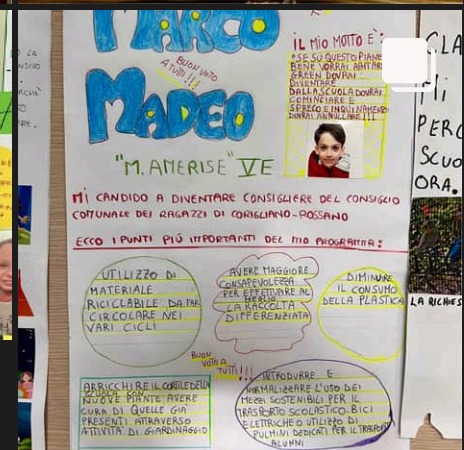 MARCO
MADEO
BUON VOTO
A TUTTI!!!
IL MIO MOTTO È:
"SE SU QUESTO PIANE
BENE VORRAI ABITAR
GREEN DOVRAI
DIVENTARE
DALLA SCUOLA DOVRAI
COMINCIARE E
SPRECO E INQUINAMENTO
DOVRAI ANNULLARE!!!
"M. AMERISE" VE
MI CANDIDO A DIVENTARE CONSIGLIERE DEL CONSIGLIO
COMUNALE DEI RAGAZZI DI CORIGLIANO-ROSSANO
ECCO I PUNTI PIÚ IMPORTANTI DEL MIO PROGRAMMA:
UTILIZZO DI
MATERIALE
RICICLABILE DA FAR
CIRCOLARE NEI
VARI CICLI
AVERE MAGGIORE
CONSAPEVOLEZZA
PER EFFETTUARE AL
MEGLIO
LA RACCOLTA
DIFFERENZIATA
DIMINUIRE
IL CONSUMO
DELLA PLASTICA
BUON
VOTO A
TUTTI!!!
ARRICCHIRE IL CORTILE DELLA
SCUOLA CON
NUOVE PIANTE AVERE
CURA DI QUELLE GIÀ
PRESENTI ATTRAVERSO
ATTIVITÀ DI GIARDINAGGIO
INTRODURRE E
NORMALIZZARE L'USO DEI
MEZZI SOSTENIBILI PER IL
TRASPORTO SCOLASTICO. BICI
ELETTRICHE O UTILIZZO DI
PULMINI DEDICATI PER IL TRASPORTO
ALUNNI
CLA
MI
PERC
SCUO
ORA.
LA RICHIES